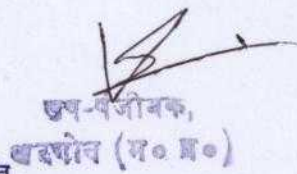 उप-पंजीयक,
खरगोन (म० प्र०)